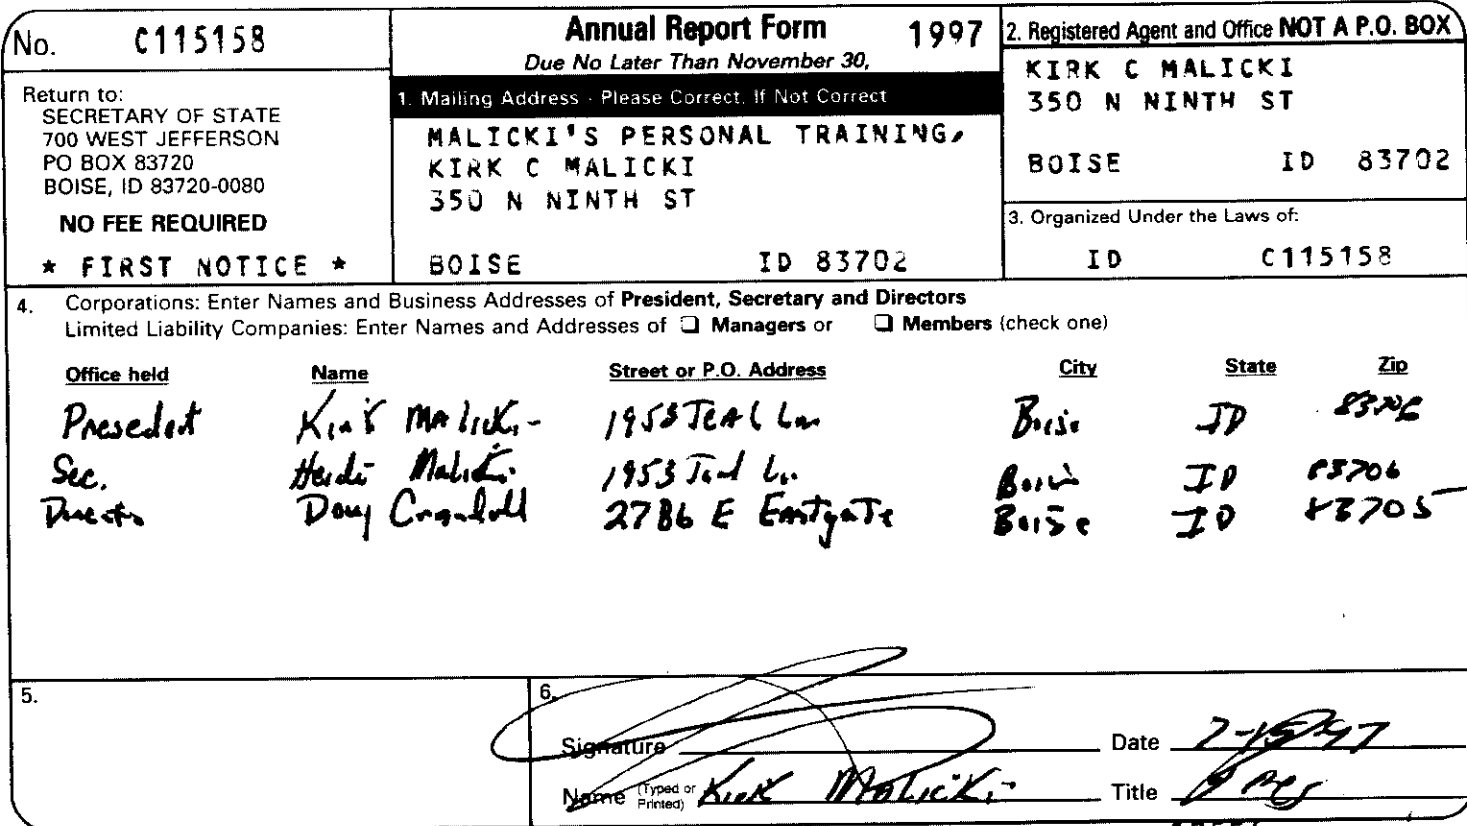 No. C115158
Return to:
SECRETARY OF STATE
700 WEST JEFFERSON
PO BOX 83720
BOISE, ID 83720-0080
NO FEE REQUIRED
* FIRST NOTICE *
Annual Report Form 1997
Due No Later Than November 30,
1. Mailing Address - Please Correct, If Not Correct
MALICKI'S PERSONAL TRAINING,
KIRK C MALICKI
350 N NINTH ST
BOISE ID 83702
2. Registered Agent and Office NOT A P.O. BOX
KIRK C MALICKI
350 N NINTH ST
BOISE ID 83702
3. Organized Under the Laws of:
ID C115158
4. Corporations: Enter Names and Business Addresses of President, Secretary and Directors
Limited Liability Companies: Enter Names and Addresses of ❏ Managers or ❏ Members (check one)
Office held Name Street or P.O. Address City State Zip
Presedent Kirk Malicki 1953 Teal Ln Boise ID 83706
Sec. Heidi Malicki 1953 Teal Ln Boise ID 83706
Director Doug 2786 E Eastgate Boise ID 83705
5.
6.
Signature Date 7-15-97
Name (Typed or Printed) Kirk Malicki Title Pres